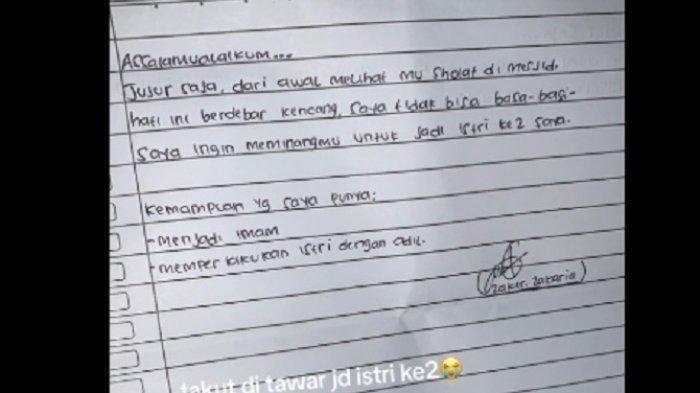 Assalamualaikum...
Jujur saja, dari awal melihat mu sholat di mesjid.
hati ini berdebar kencang, saya tidak bisa basa-basi-
saya ingin meminangmu untuk jadi istri ke2 saya.
kemampuan yg saya punya:
-menjadi imam
-memperlakukan istri dengan adil.
(zakir. zakaria)
takut di tawar jd istri ke2😭